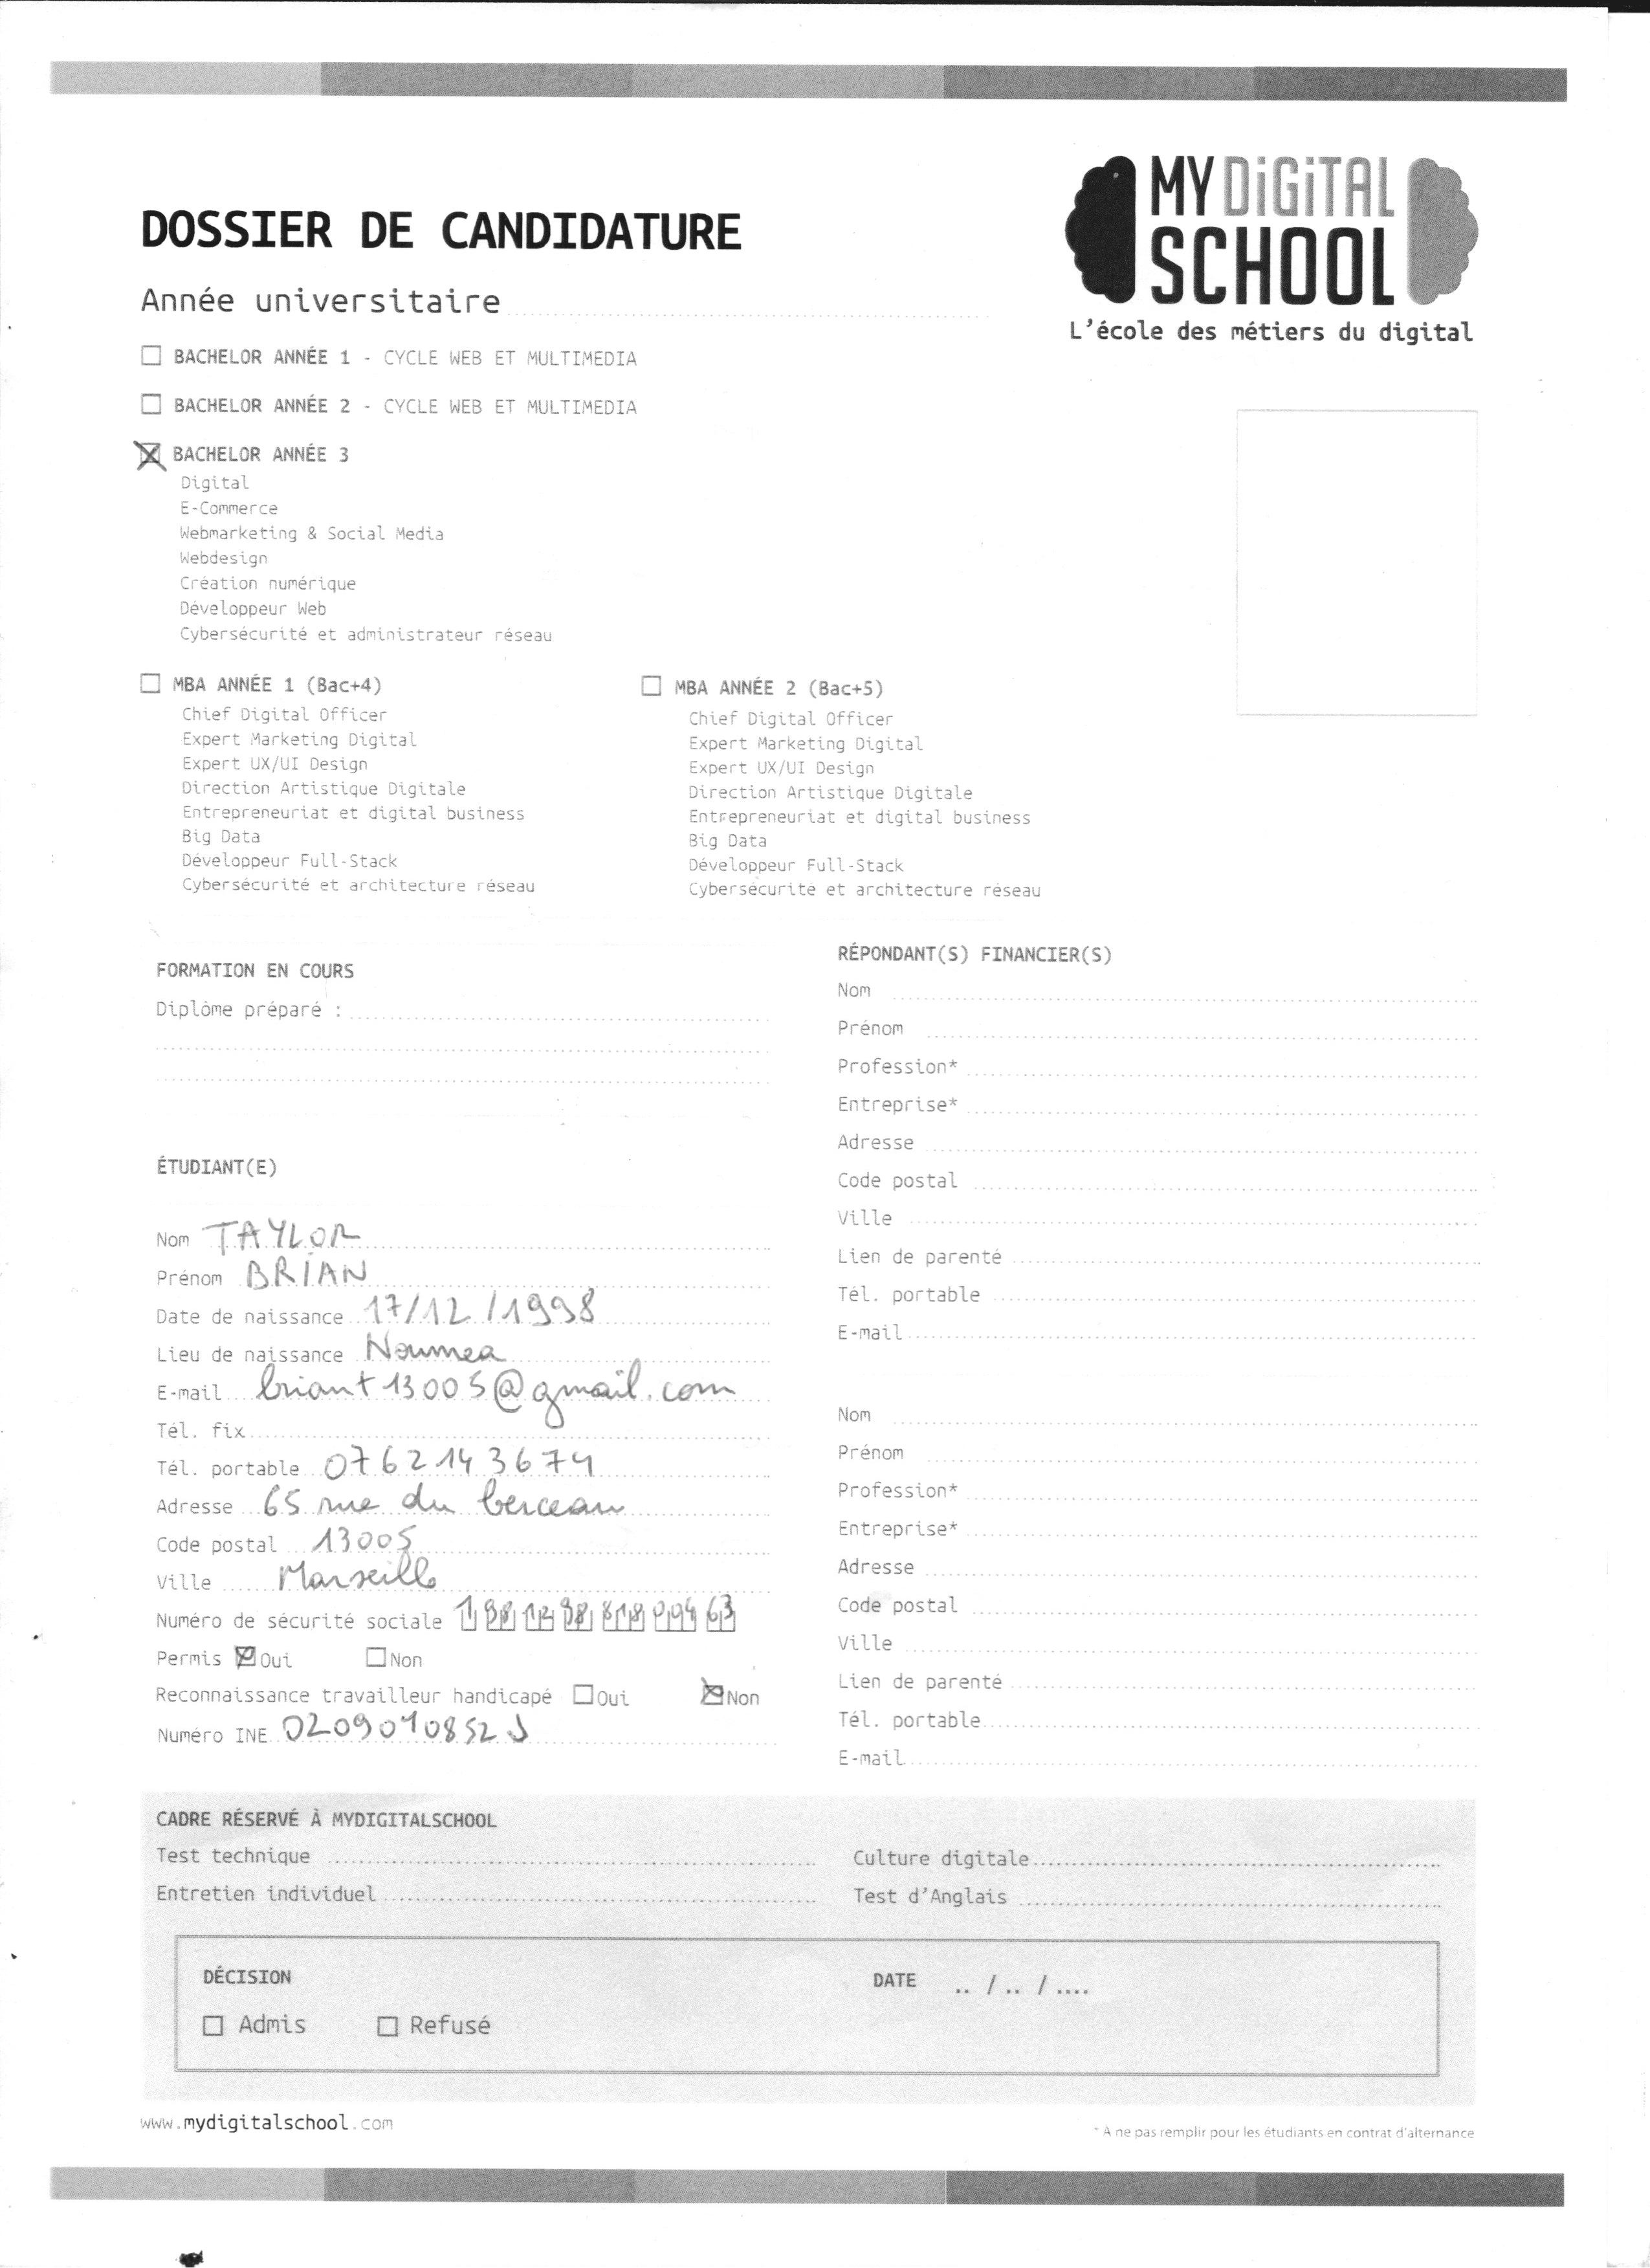 MYDiGiTAL
SCHOOL
L'école des métiers du digital
DOSSIER DE CANDIDATURE
Année universitaire
BACHELOR ANNÉE 1 - CYCLE WEB ET MULTIMEDIA
BACHELOR ANNÉE 2 - CYCLE WEB ET MULTIMEDIA
BACHELOR ANNÉE 3
Digital
E-Commerce
Webmarketing & Social Media
Webdesign
Création numérique
Développeur Web
Cybersécurité et administrateur réseau
MBA ANNÉE 1 (Bac+4)
Chief Digital Officer
Expert Marketing Digital
Expert UX/UI Design
Direction Artistique Digitale
Entrepreneuriat et digital business
Big Data
Développeur Full-Stack
Cybersécurité et architecture réseau
MBA ANNÉE 2 (Bac+5)
Chief Digital Officer
Expert Marketing Digital
Expert UX/UI Design
Direction Artistique Digitale
Entrepreneuriat et digital business
Big Data
Développeur Full-Stack
Cybersécurité et architecture réseau
FORMATION EN COURS
Diplôme préparé :
ÉTUDIANT(E)
Nom TAYLOR
Prénom BRIAN
Date de naissance 17/12/1998
Lieu de naissance Noumea
E-mail briant13005@gmail.com
Tél. fix
Tél. portable 0762143674
Adresse 65 rue du berceau
Code postal 13005
Ville Marseille
Numéro de sécurité sociale
Permis Oui Non
Reconnaissance travailleur handicapé Oui Non
Numéro INE 0209010852J
RÉPONDANT(S) FINANCIER(S)
Nom
Prénom
Profession*
Entreprise*
Adresse
Code postal
Ville
Lien de parenté
Tél. portable
E-mail
Nom
Prénom
Profession*
Entreprise*
Adresse
Code postal
Ville
Lien de parenté
Tél. portable
E-mail
CADRE RÉSERVÉ À MYDIGITALSCHOOL
Test technique
Entretien individuel
Culture digitale
Test d'Anglais
DÉCISION
Admis Refusé
DATE .. / .. / ....
www.mydigitalschool.com
* A ne pas remplir pour les étudiants en contrat d'alternance